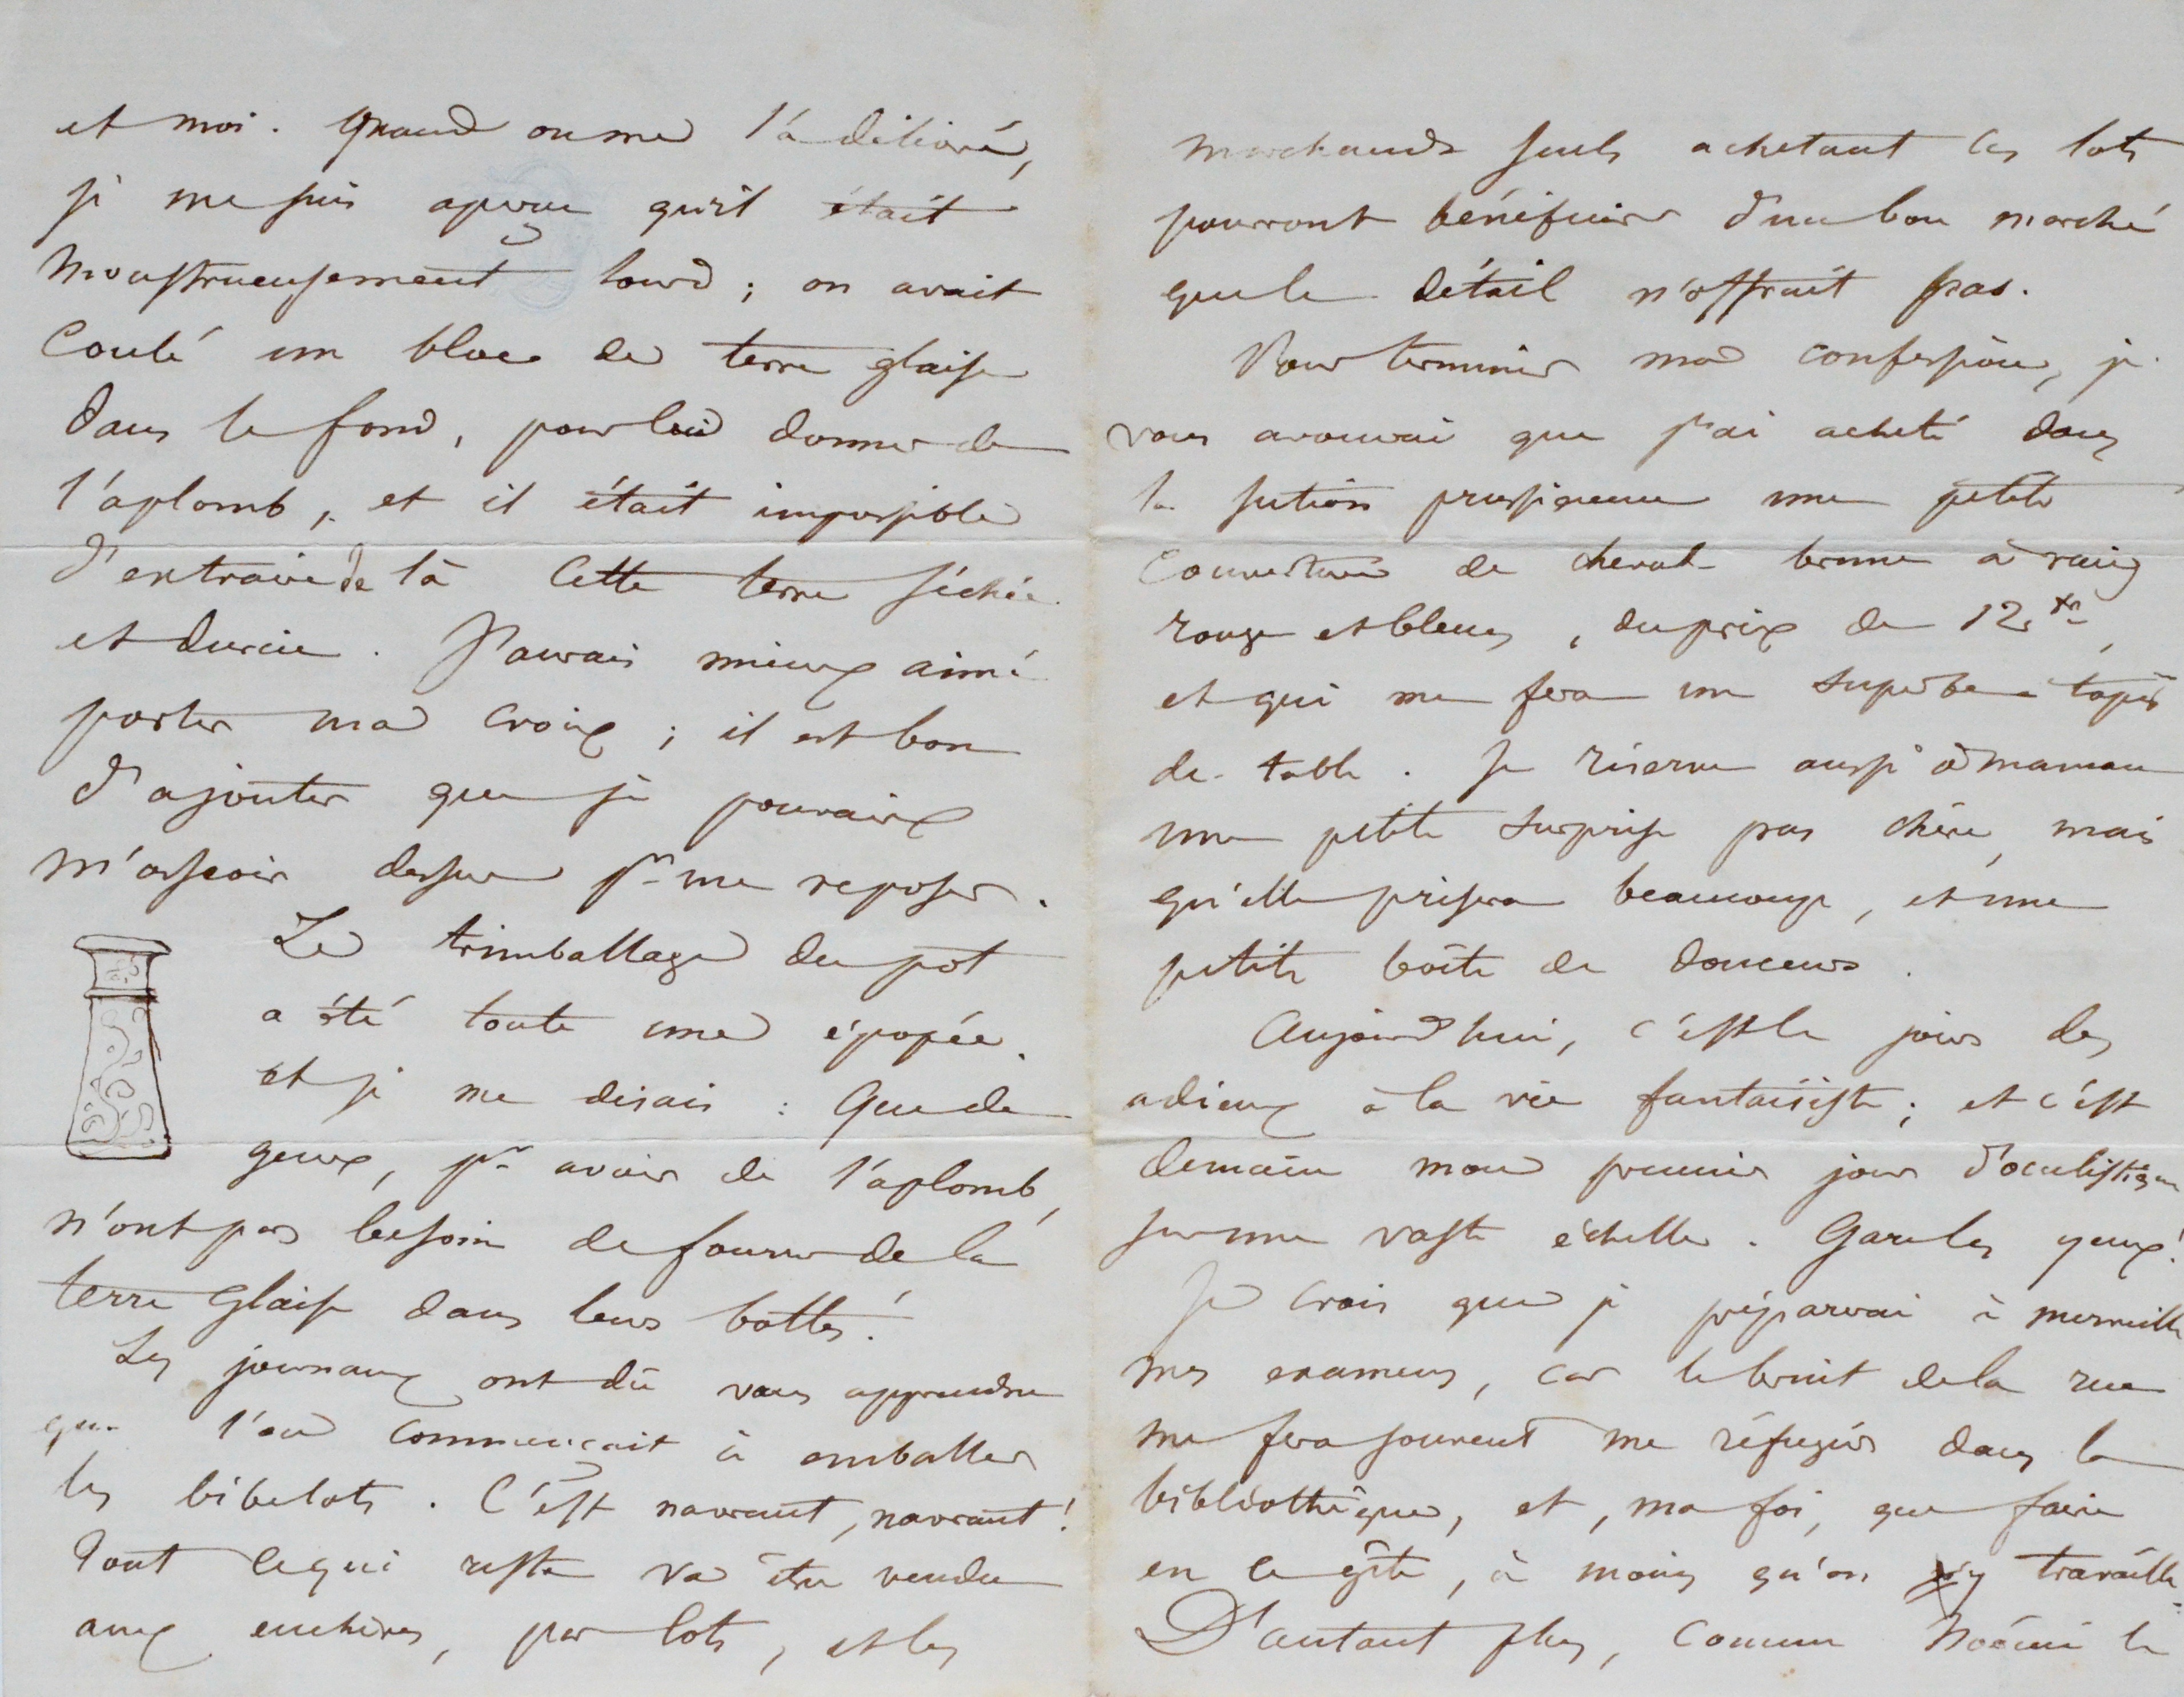 et moi. Quand on me l'a délivré,
je me suis aperçu qu'il était
monstrueusement lourd ; on avait
coulé un bloc de terre glaise
dans le fond, pour lui donner de
l'aplomb, et il était impossible
d'extraire de là cette terre séchée
et durcie. J'aurais mieux aimé
porter ma croix ; il est bon
d'ajouter que je pouvais
m'asseoir dessus pr me reposer.
Le trimballage du pot
a été toute une épopée.
et je me disais : Que de
gens, pr avoir de l'aplomb,
n'ont pas besoin de fourrer de la
terre glaise dans leurs bottes !
Les journaux ont dû vous apprendre
que l'on commençait à emballer
les bibelots. C'est navrant, navrant !
Tout ce qui reste va être vendu
aux enchères, par lots, et les
marchands seuls achetant ces lots
pourront bénéficier d'un bon marché
que le détail n'offrait pas.
Pour terminer ma confession, je
vous avouerai que j'ai acheté dans
la section prussienne une petite
couverture de cheval brune à raies
rouges et bleues, du prix de 12 frs,
et qui me fera un superbe tapis
de table. Je réserve aussi à maman
une petite surprise pas chère, mais
qu'elle prisera beaucoup, et une
petite boîte de douceurs.
Aujourd'hui, c'est le jour des
adieux à la vie fantaisiste ; et c'est
demain mon premier jour d'oculistique
sur une vaste échelle. Gare les yeux !
Je crois que je préparerai à merveille
mes examens, car le bruit de la rue
me fera souvent me réfugier dans la
bibliothèque, et, ma foi, que faire
en ce gîte, à moins qu'on n'y travaille.
D'autant plus, comme Noémi le